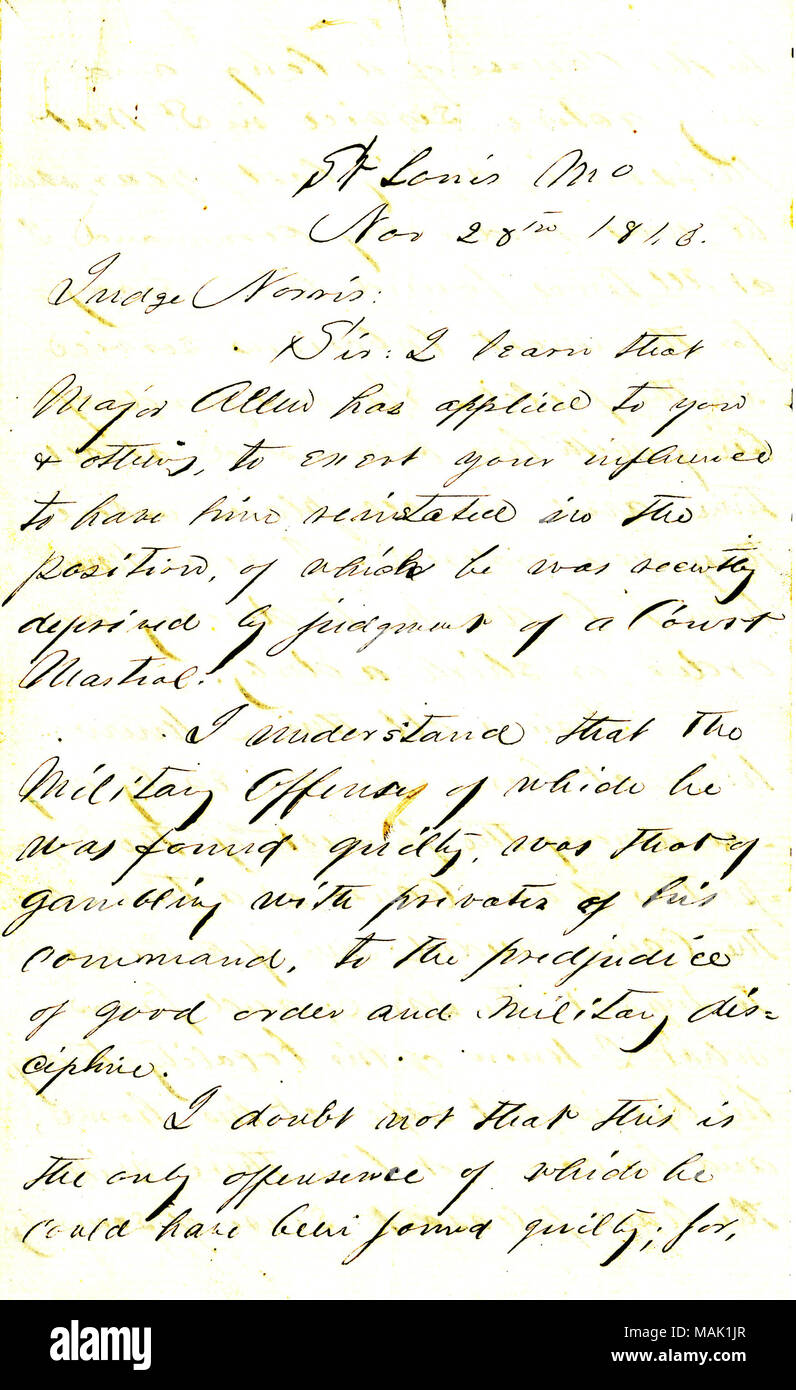 St Louis Mo
Nov 28th 1863.
Judge Norris:
Sir: I learn that
Major Allen has applied to you
& others, to exert your influence
to have him reinstated in the
position, of which he was recently
deprived by judgment of a Court
Martial.
I understand that the
Military Offense of which he
was found guilty, was that of
gambling with privates of his
command, to the predjudice
of good order and Military dis=
cipline.
I doubt not that this is
the only offensence of which he
could have been found guilty; for,
alamy
Image ID: MAK1JR
www.alamy.com